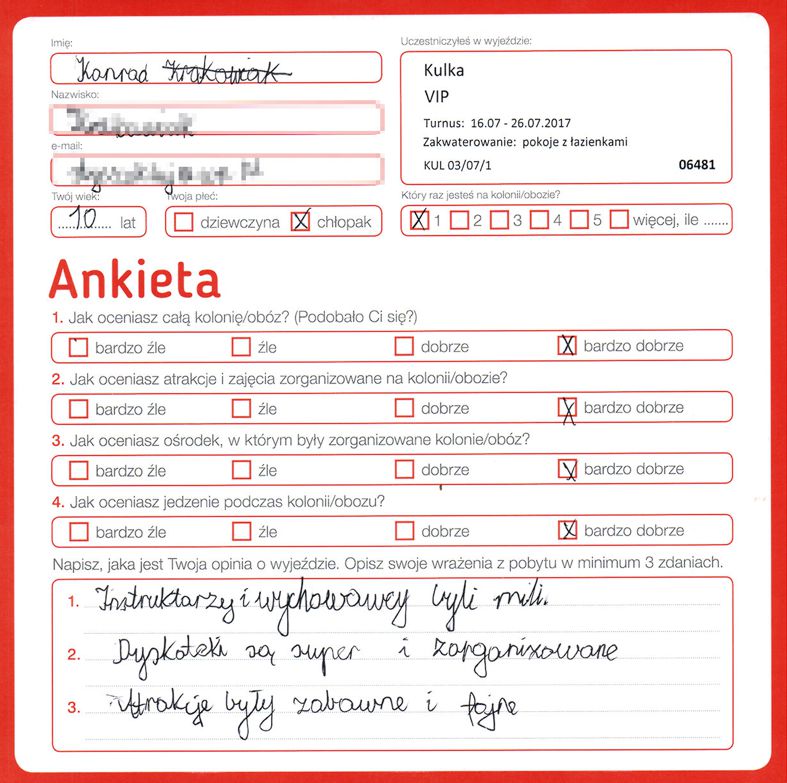 Imię:
Konrad Krakowiak
Nazwisko:
e-mail:
Twój wiek:
10 lat
Twoja płeć:
dziewczyna X chłopak
Uczestniczyłeś w wyjeździe:
Kulka
VIP
Turnus: 16.07 - 26.07.2017
Zakwaterowanie: pokoje z łazienkami
KUL 03/07/1 06481
Który raz jesteś na kolonii/obozie?
X 1 2 3 4 5 więcej, ile .......
Ankieta
1. Jak oceniasz całą kolonię/obóz? (Podobało Ci się?)
bardzo źle źle dobrze X bardzo dobrze
2. Jak oceniasz atrakcje i zajęcia zorganizowane na kolonii/obozie?
bardzo źle źle dobrze X bardzo dobrze
3. Jak oceniasz ośrodek, w którym były zorganizowane kolonie/obóz?
bardzo źle źle dobrze X bardzo dobrze
4. Jak oceniasz jedzenie podczas kolonii/obozu?
bardzo źle źle dobrze X bardzo dobrze
Napisz, jaka jest Twoja opinia o wyjeździe. Opisz swoje wrażenia z pobytu w minimum 3 zdaniach.
1. Instruktarzy i wychowawcy byli mili.
2. Dyskoteki są super i zorganixowane
3. Atrakcje były zabawne i fajne